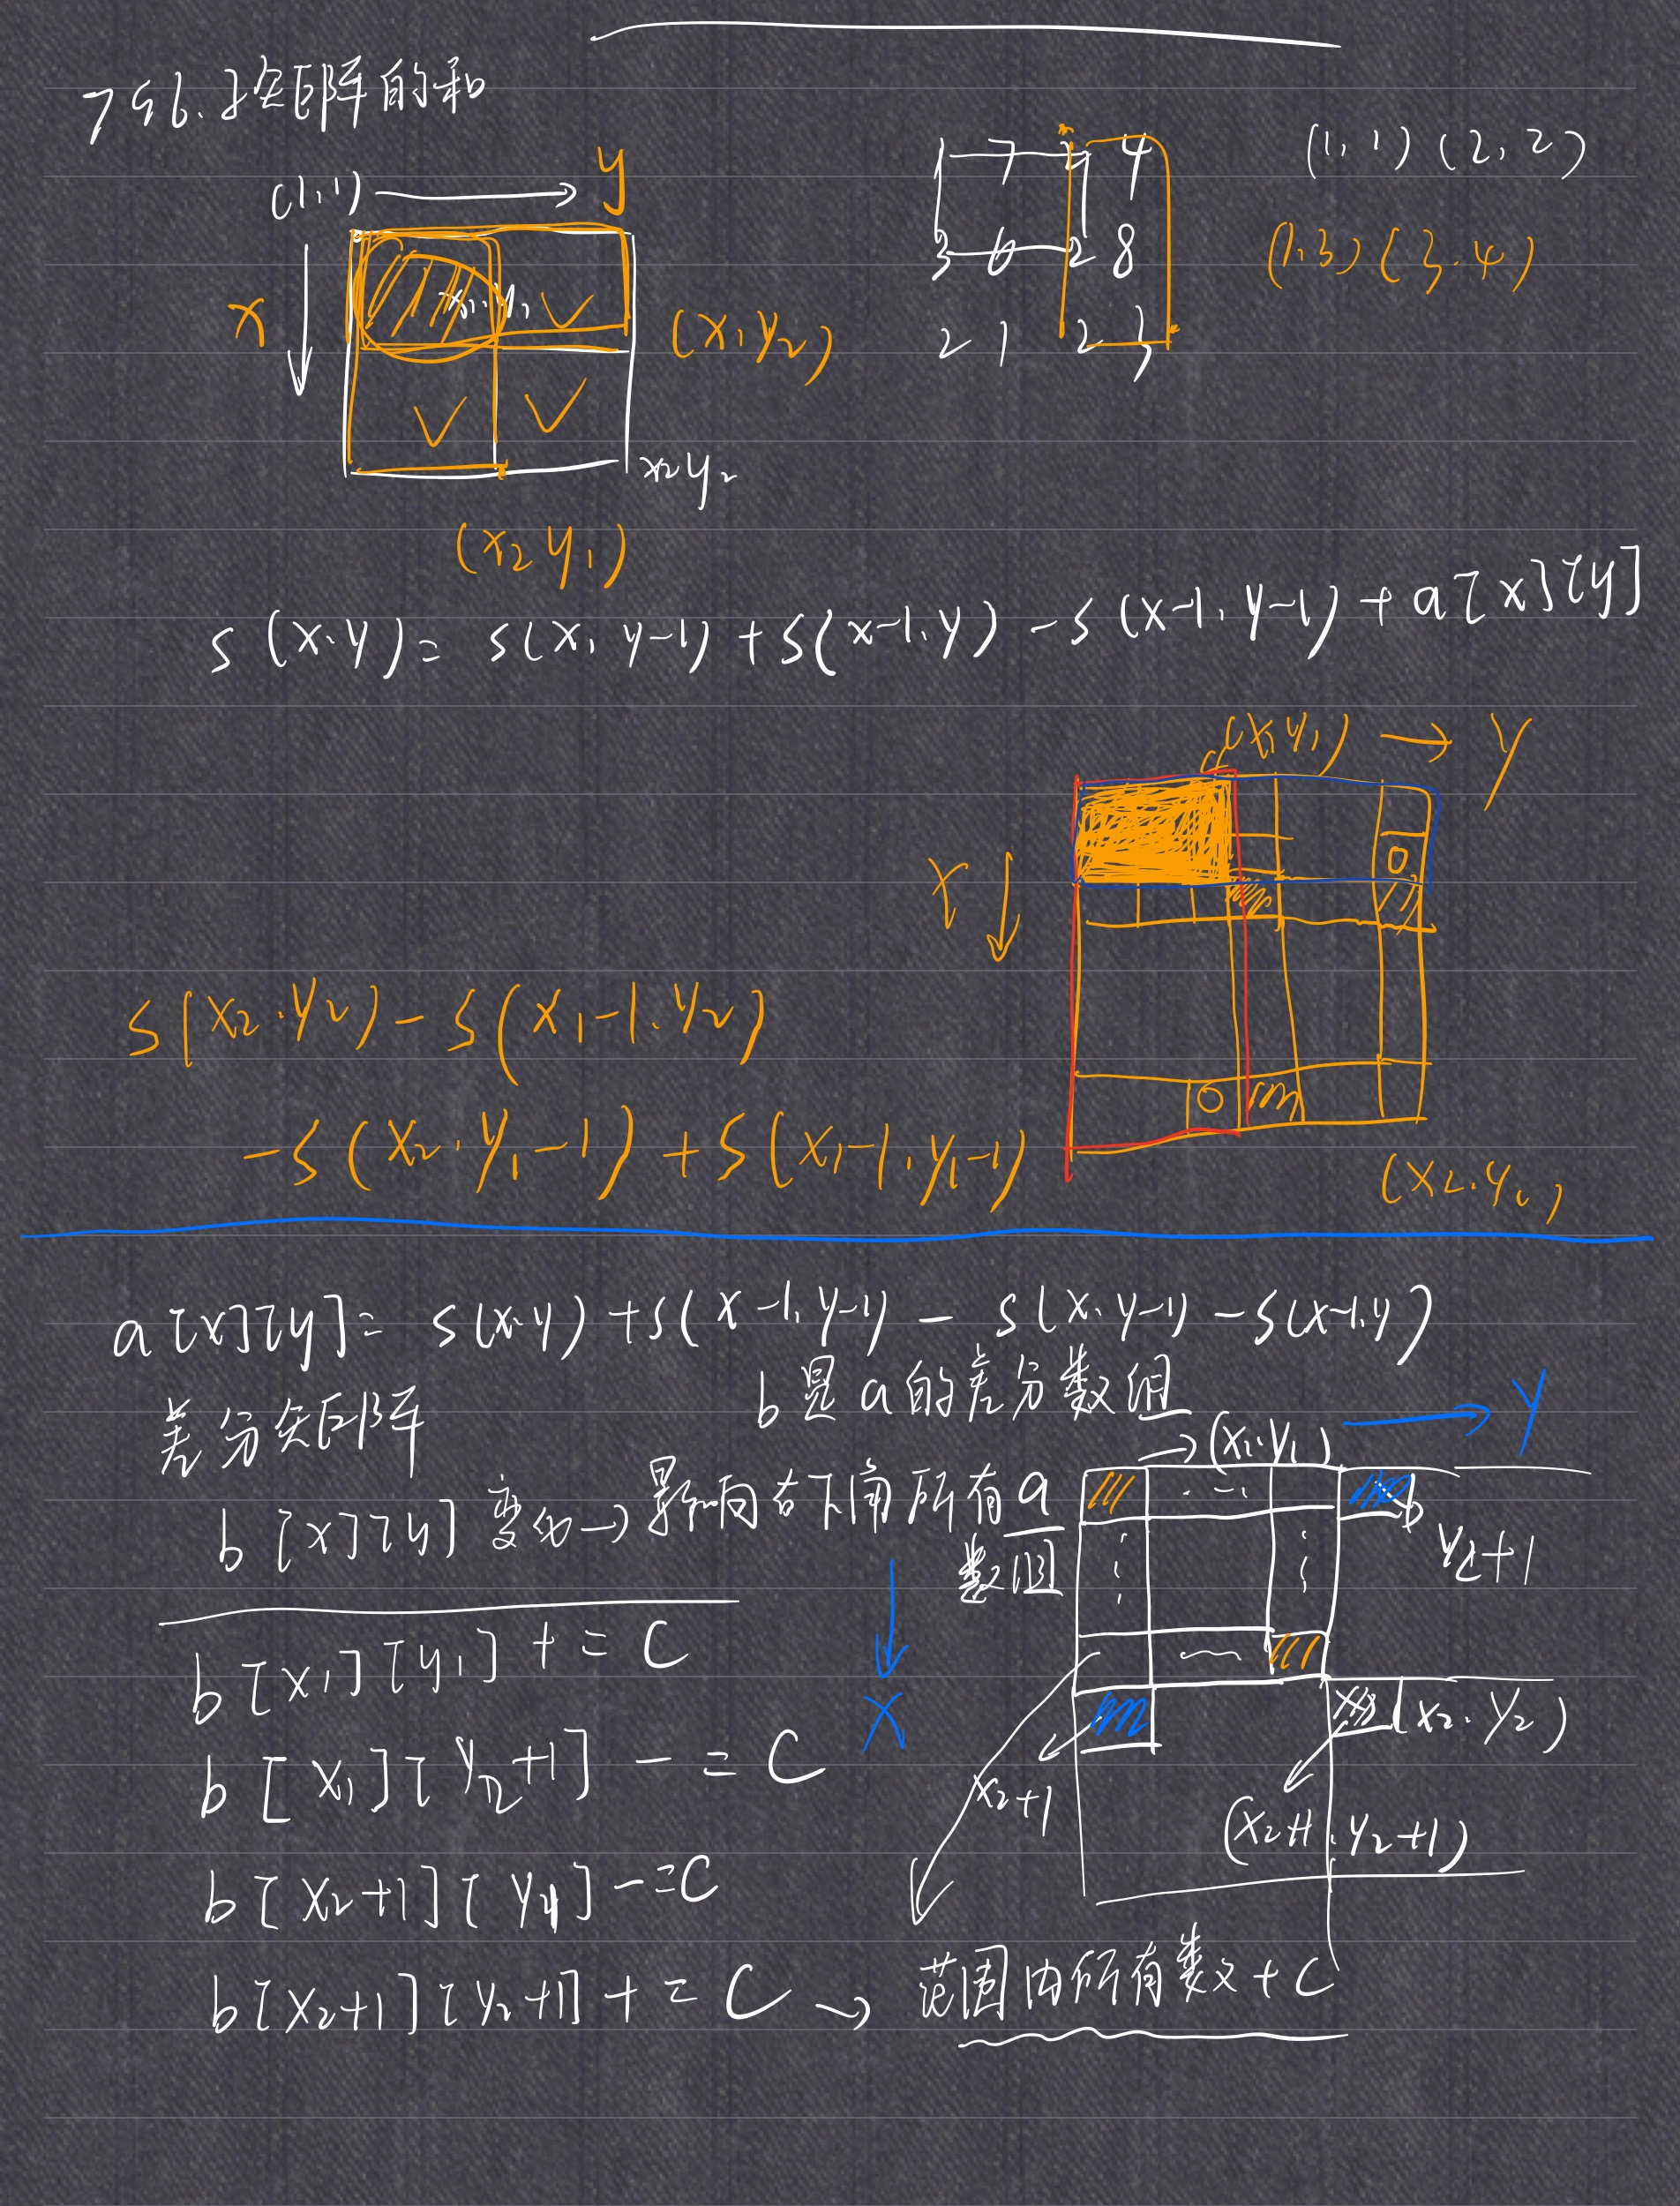 796.子矩阵的和
(1,1) y
x
x1,y1
(x1 y2)
x2 y2
(x2 y1)
1 7 2 4
3 6 2 8
2 1 2 3
(1,1) (2,2)
(1,3) (3.4)
s(x.y)= s(x, y-1) + s(x-1.y) - s(x-1, y-1) + a[x][y]
(x1 y1) → y
x
s(x2.y2) - s(x1-1.y2)
-s(x2.y1-1) + s(x1-1,y1-1)
a[x][y]= s(x.y) + s(x-1,y-1) - s(x.y-1) - s(x-1,y)
b是a的差分数组
差分矩阵
(x1.y1) → y
b[x][y]变化→影响右下角所有a
数组
y2+1
x
b[x1][y1] += C
(x2.y2)
b[x1][y2+1] -= C
x2+1
(x2+1.y2+1)
b[x2+1][y1] -=C
b[x2+1][y2+1] += C → 范围内所有数+C